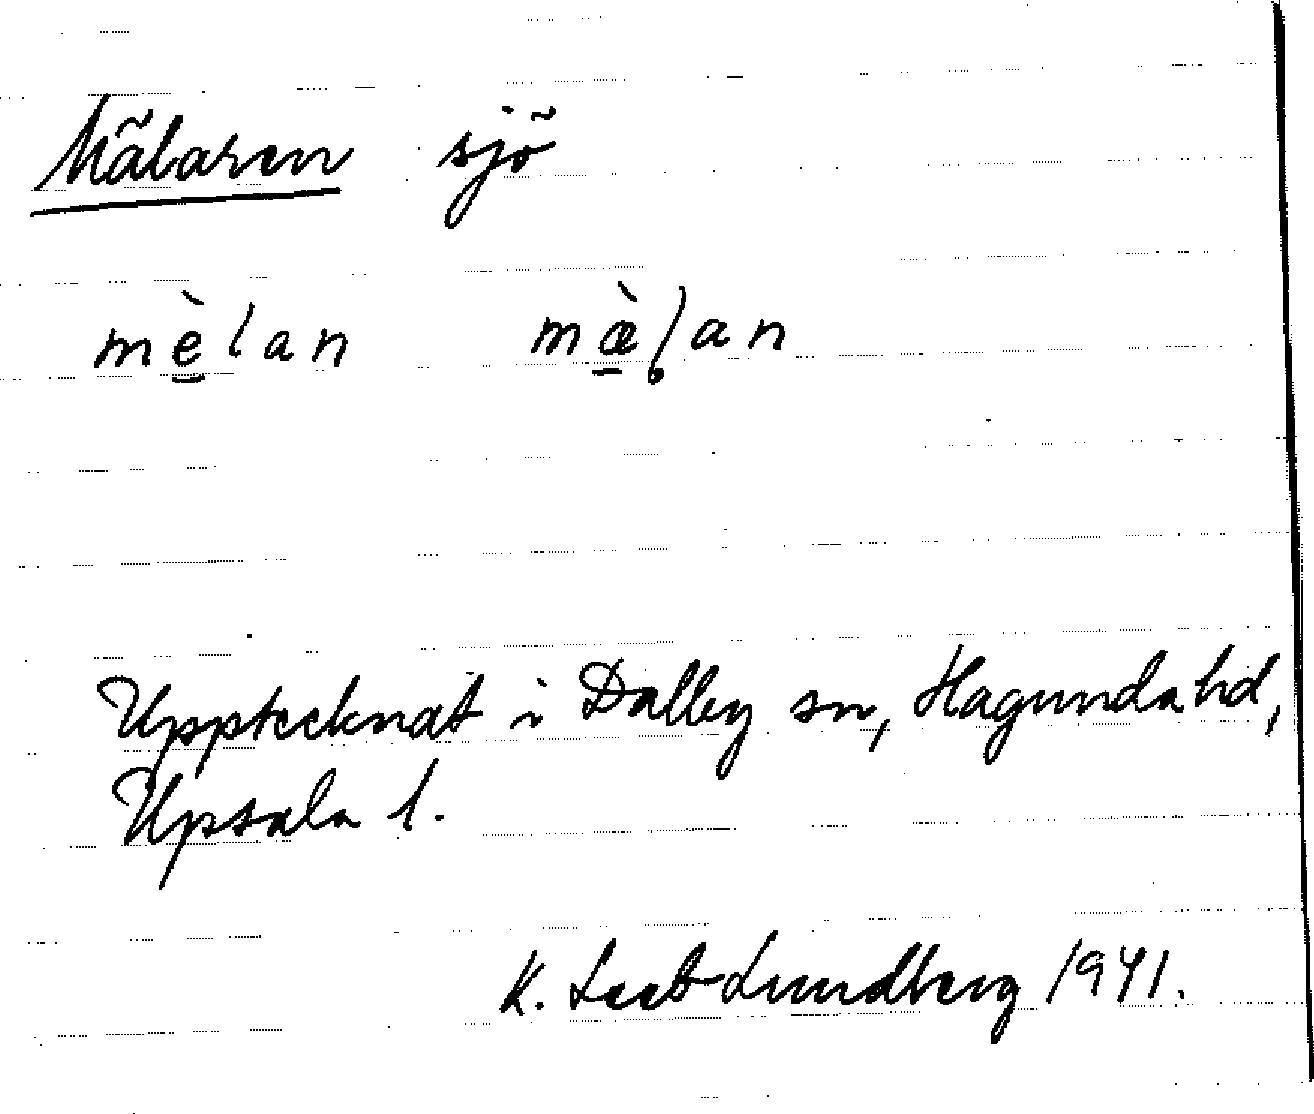 Mälaren sjö
mè̱lan mæ̱̀ɭan
Upptecknat i Dalby sn, Hagunda hd,
Upsala l.
K. Leeb-Lundberg 1941.